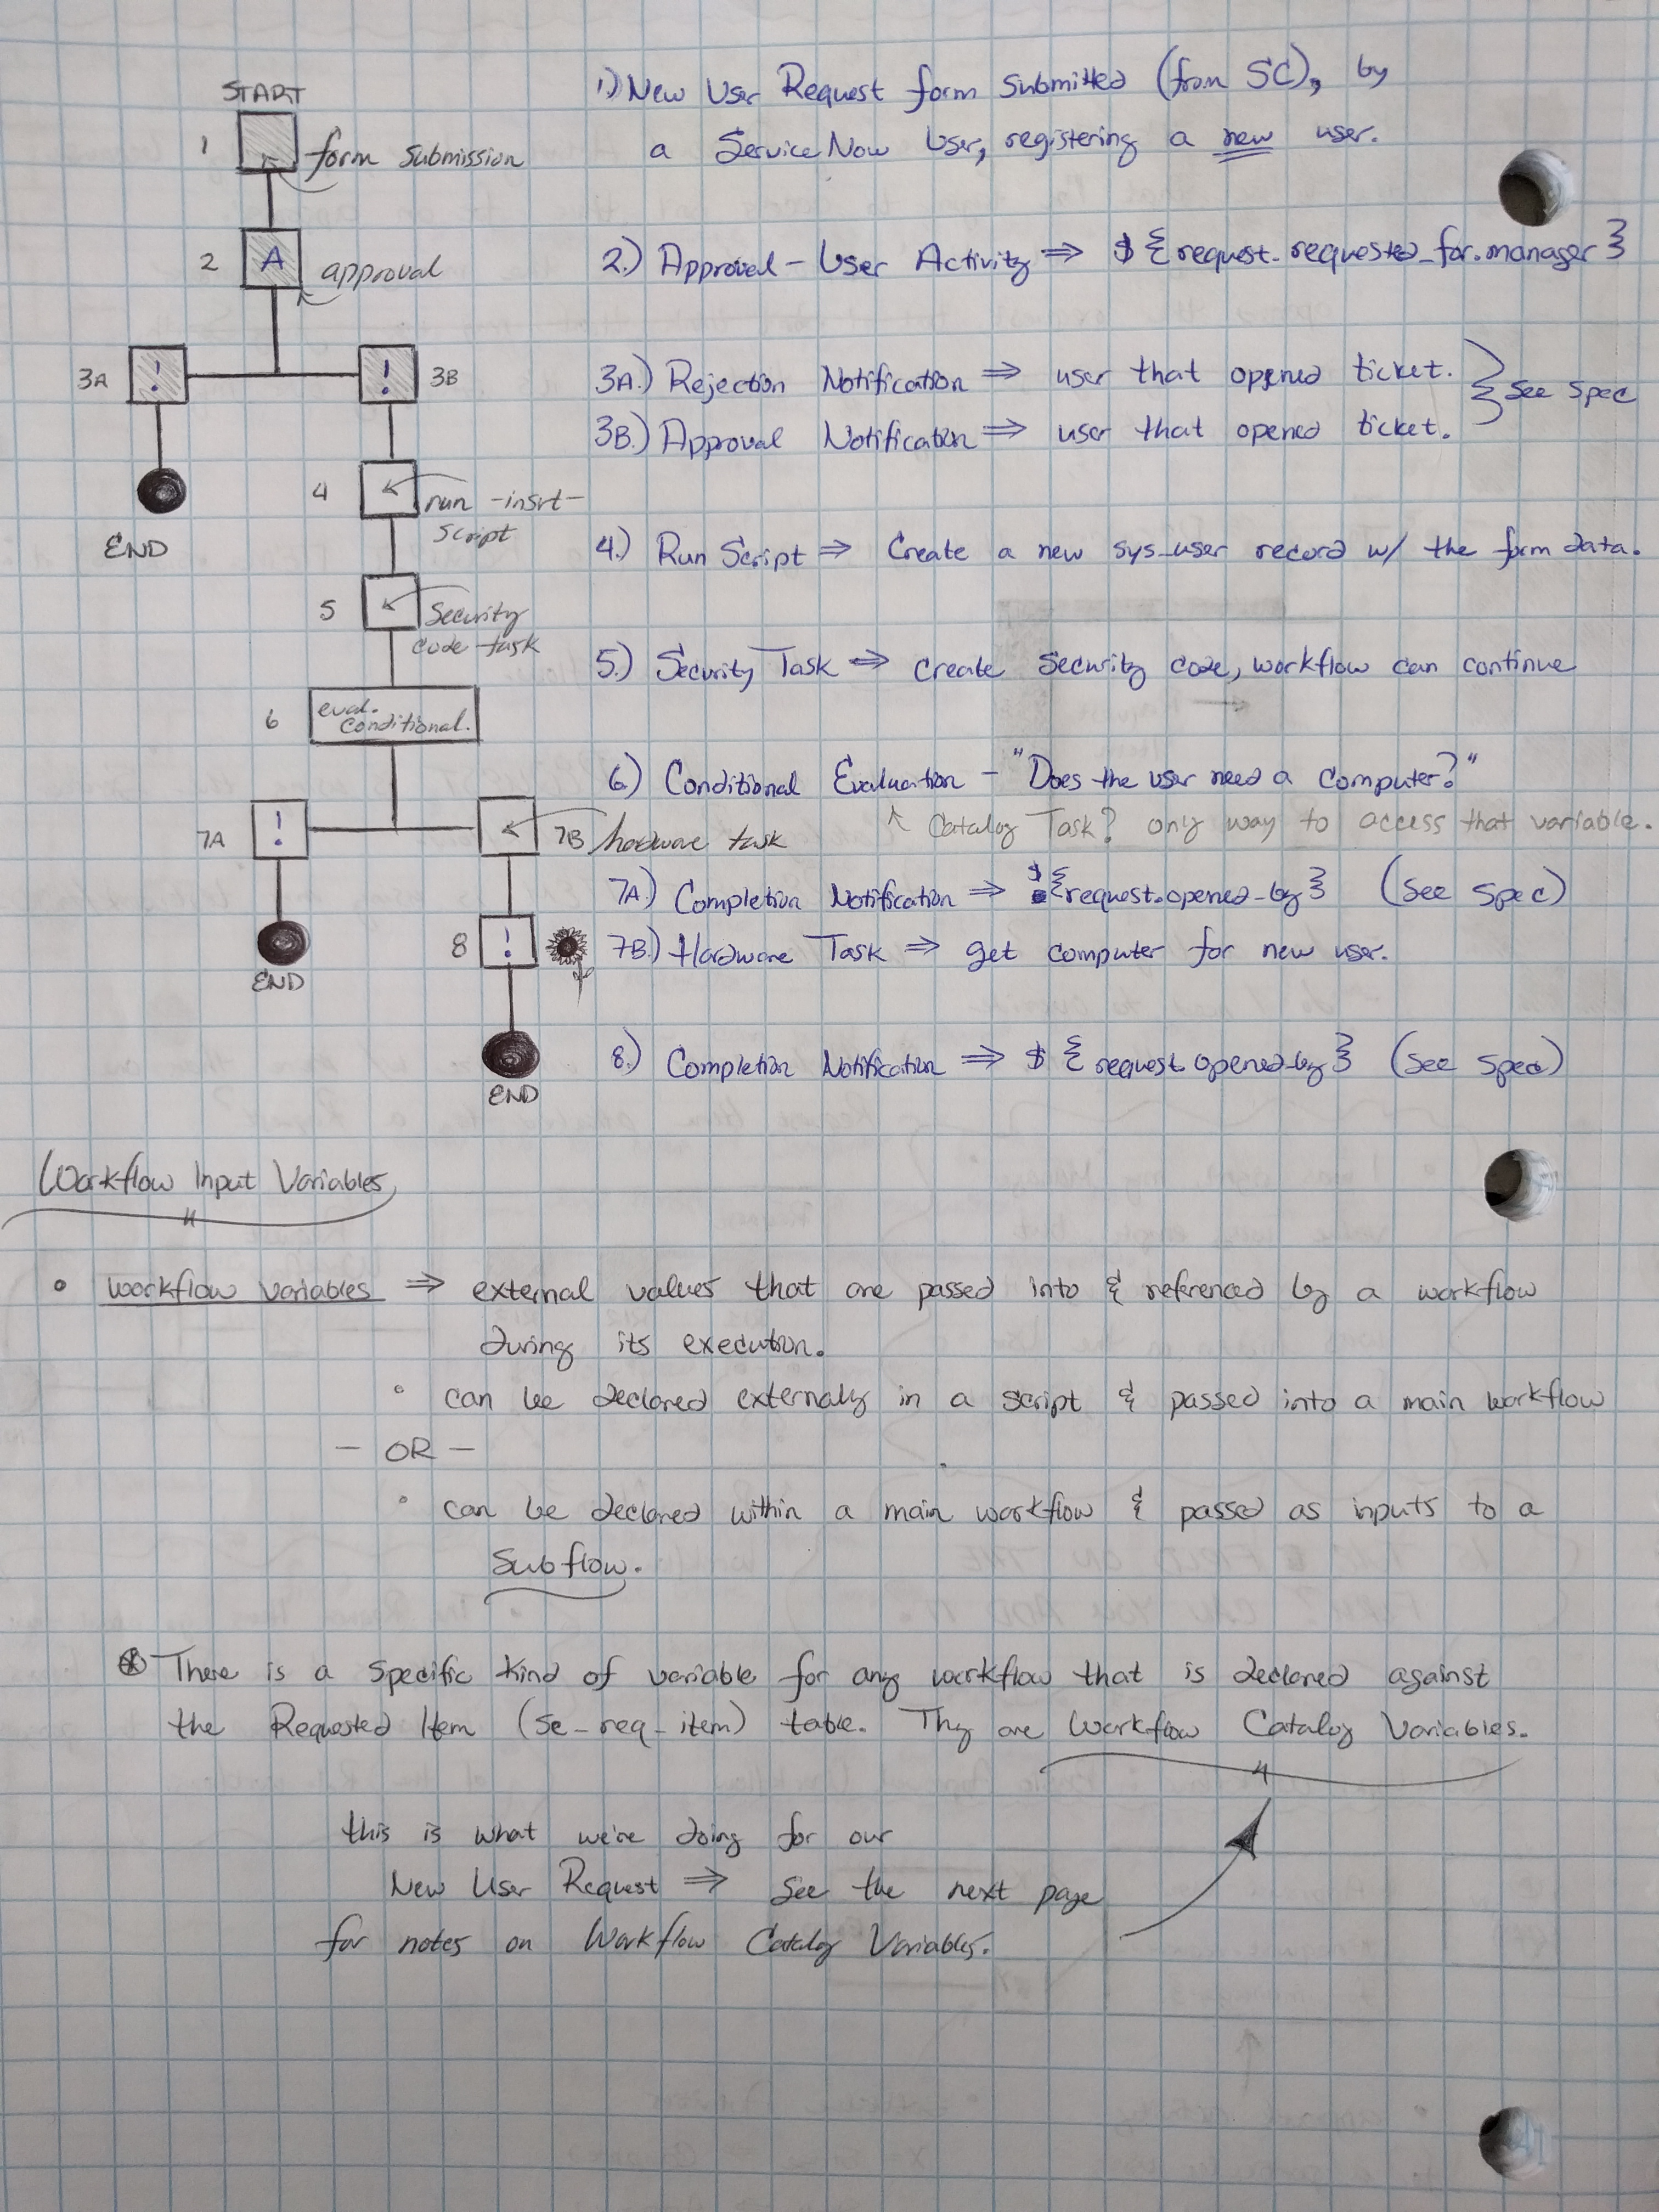 START
1
form submission
1.) New User Request form submitted (from SC), by
a ServiceNow User, registering a new user.
2
A
approval
2.) Approval - User Activity ⇒ ${request.requested_for.manager}
3A
!
!
3B
3A.) Rejection Notification ⇒ user that opened ticket.
3B.) Approval Notification ⇒ user that opened ticket.
See Spec
END
4
run -insrt-
script
4.) Run Script ⇒ Create a new sys_user record w/ the form data.
5
Security
code task
5.) Security Task ⇒ create security code, workflow can continue
6
eval.
conditional.
6.) Conditional Evaluation - "Does the user need a computer?"
↖ Catalog Task? only way to access that variable.
7A
!
7B hardware task
7A.) Completion Notification ⇒ ${request.opened_by} (See Spec)
END
8
!
7B.) Hardware Task ⇒ get computer for new user.
8.) Completion Notification ⇒ ${request.opened_by} (See Spec)
END
Workflow Input Variables
• workflow variables ⇒ external values that are passed into & referenced by a workflow
during its execution.
• can be declared externally in a script & passed into a main workflow
- OR -
• can be declared within a main workflow & passed as inputs to a
Subflow.
* There is a specific kind of variable for any workflow that is declared against
the Requested Item (sc_req_item) table. They are Workflow Catalog Variables.
this is what we're doing for our
New User Request ⇒ See the next page
for notes on Workflow Catalog Variables.